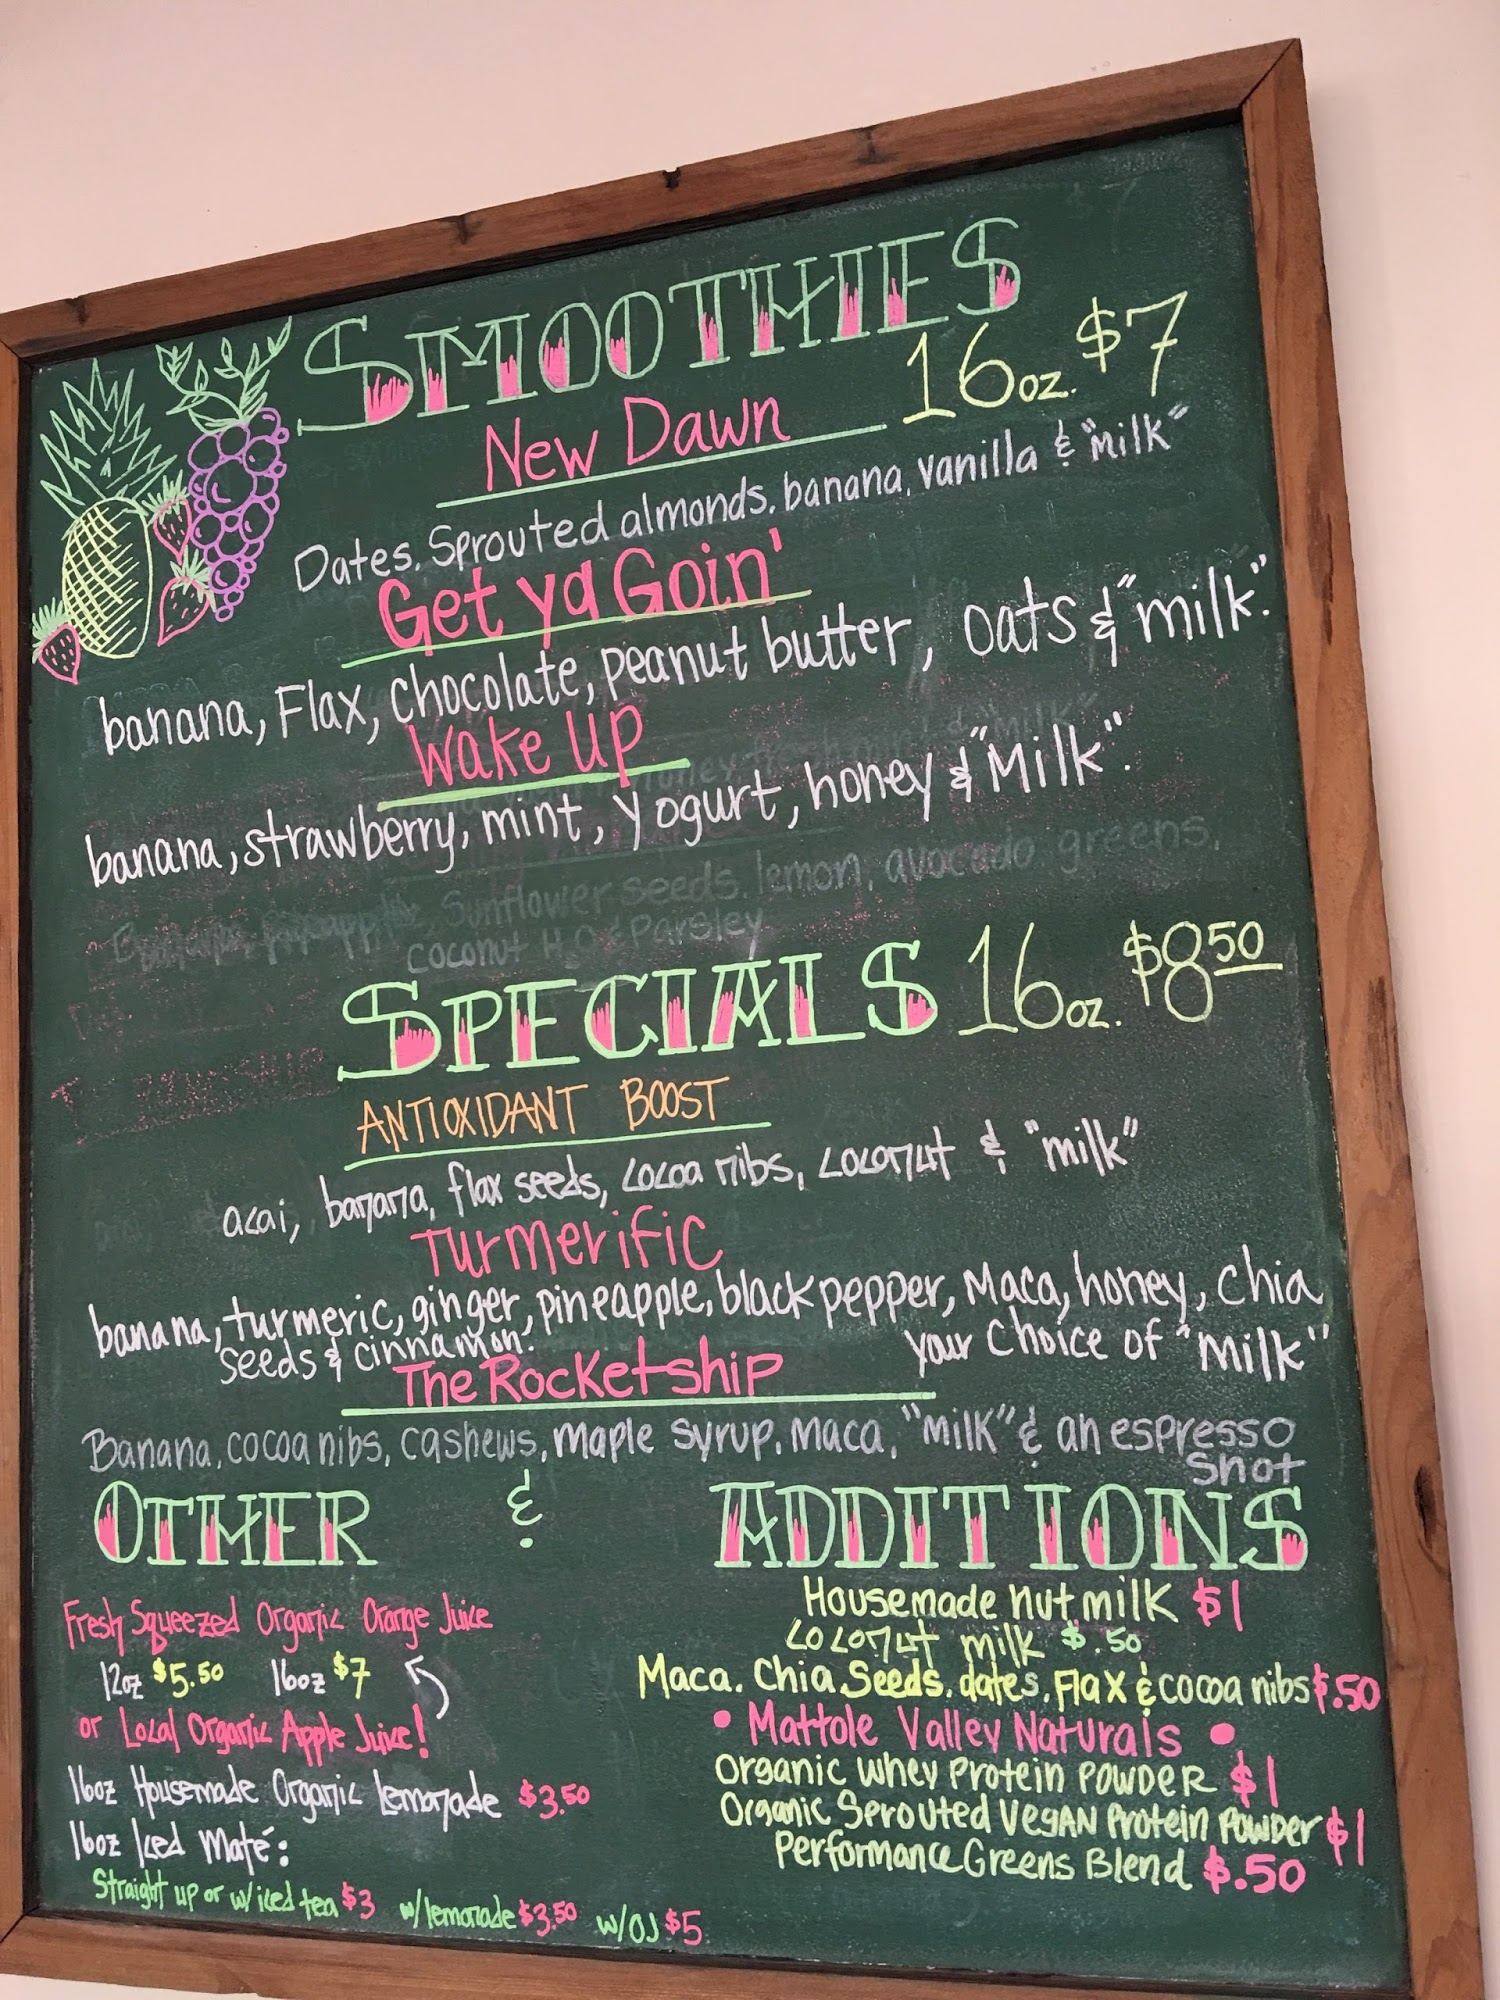 SMOOTHIES
16oz. $7
New Dawn
Dates, Sprouted almonds, banana, vanilla & "milk"
Get ya Goin'
banana, Flax, chocolate, peanut butter, oats & "milk".
Wake Up
banana, strawberry, mint, yogurt, honey & "Milk".
Sunflower seeds, lemon, avocado greens,
coconut H2O & Parsley
SPECIALS 16oz. $8.50
ANTIOXIDANT BOOST
acai, banana, flax seeds, cocoa nibs, coconut & "milk"
Turmerific
banana, turmeric, ginger, pineapple, black pepper, Maca, honey, chia
seeds & cinnamon. your choice of "milk"
The Rocketship
Banana, cocoa nibs, cashews, maple syrup, maca, "milk" & an espresso
shot
OTHER & ADDITIONS
Fresh Squeezed Organic Orange Juice
12oz $5.50 16oz $7
or Local Organic Apple Juice!
16oz Housemade Organic Lemonade $3.50
16oz Iced Maté:
Straight up or w/iced tea $3 w/lemonade $3.50 w/OJ $5
Housemade nut milk $1
coconut milk $.50
Maca, Chia Seeds, dates, Flax & cocoa nibs $.50
• Mattole Valley Naturals •
Organic Whey Protein Powder $1
Organic Sprouted Vegan Protein Powder $1
Performance Greens Blend $.50